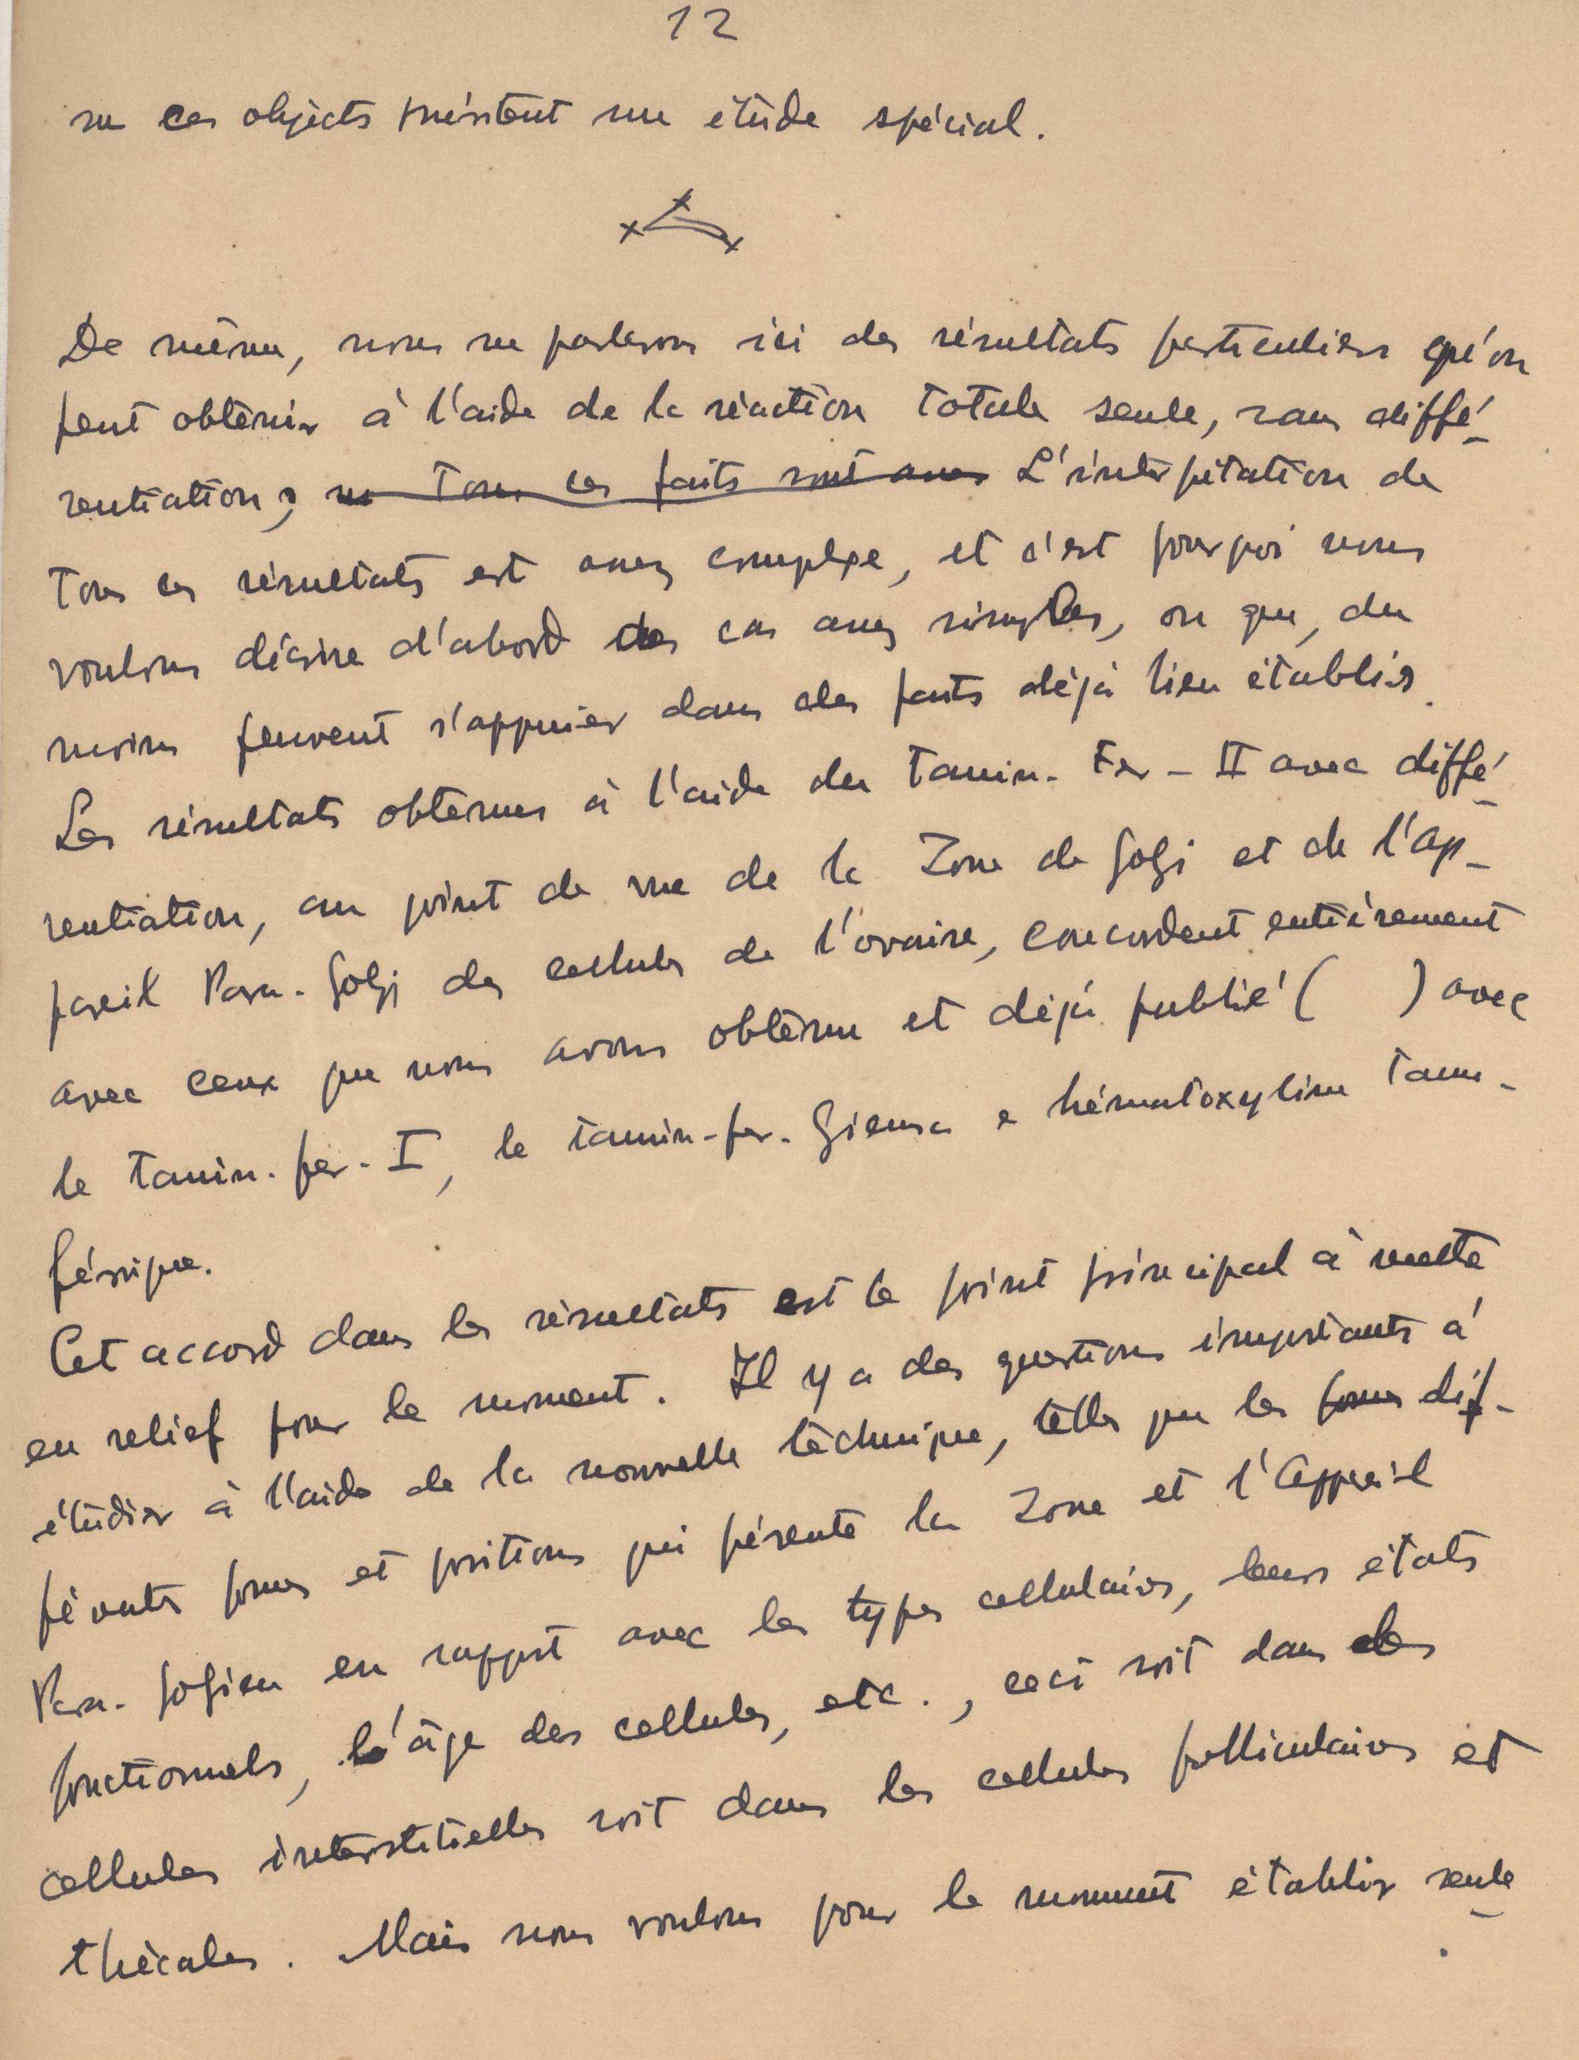 12
su ces objects méritent une étude spécial.
De même, nous ne parlerons ici des résultats particuliers qu'on
peut obtenir à l'aide de la réaction totale seule, sans diffé-
rentiation; Tous ces faits sont L'interpétation de
tous ces résultats est assez complexe, et c'est pourquoi nous
voulons décrire d'abord des cas assez simples, ou que, du
moins peuvent s'appuier dans des faits déjà bien établis.
Les résultats obtenus à l'aide du Tanin-Fer-II avec diffé-
rentiation, au point de vue de la Zone de Golgi et de l'Ap-
pareil Para-Golgi des cellules de l'ovaire, concordent entièrement
avec ceux que nous avons obtenu et déjà publié ( ) avec
le Tanin-fer-I, le tannin-fer-Giemsa e hématoxyline tann-
férrique.
Cet accord dans les résultats est le point principal à mette
en relief pour le moment. Il y a des questions importants à
étudier à l'aide de la nouvelle téchnique, telles que les dif-
férents formes et positions qui présente la Zone et l'Appareil
Para-Golgien en rapport avec les types cellulaires, leurs états
fonctionnels, l'âge des cellules, etc., ceci soit dans les
cellules interstitielles soit dans les cellules folliculaires et
thécales. Mais nous voulons pour le moment établir seule-